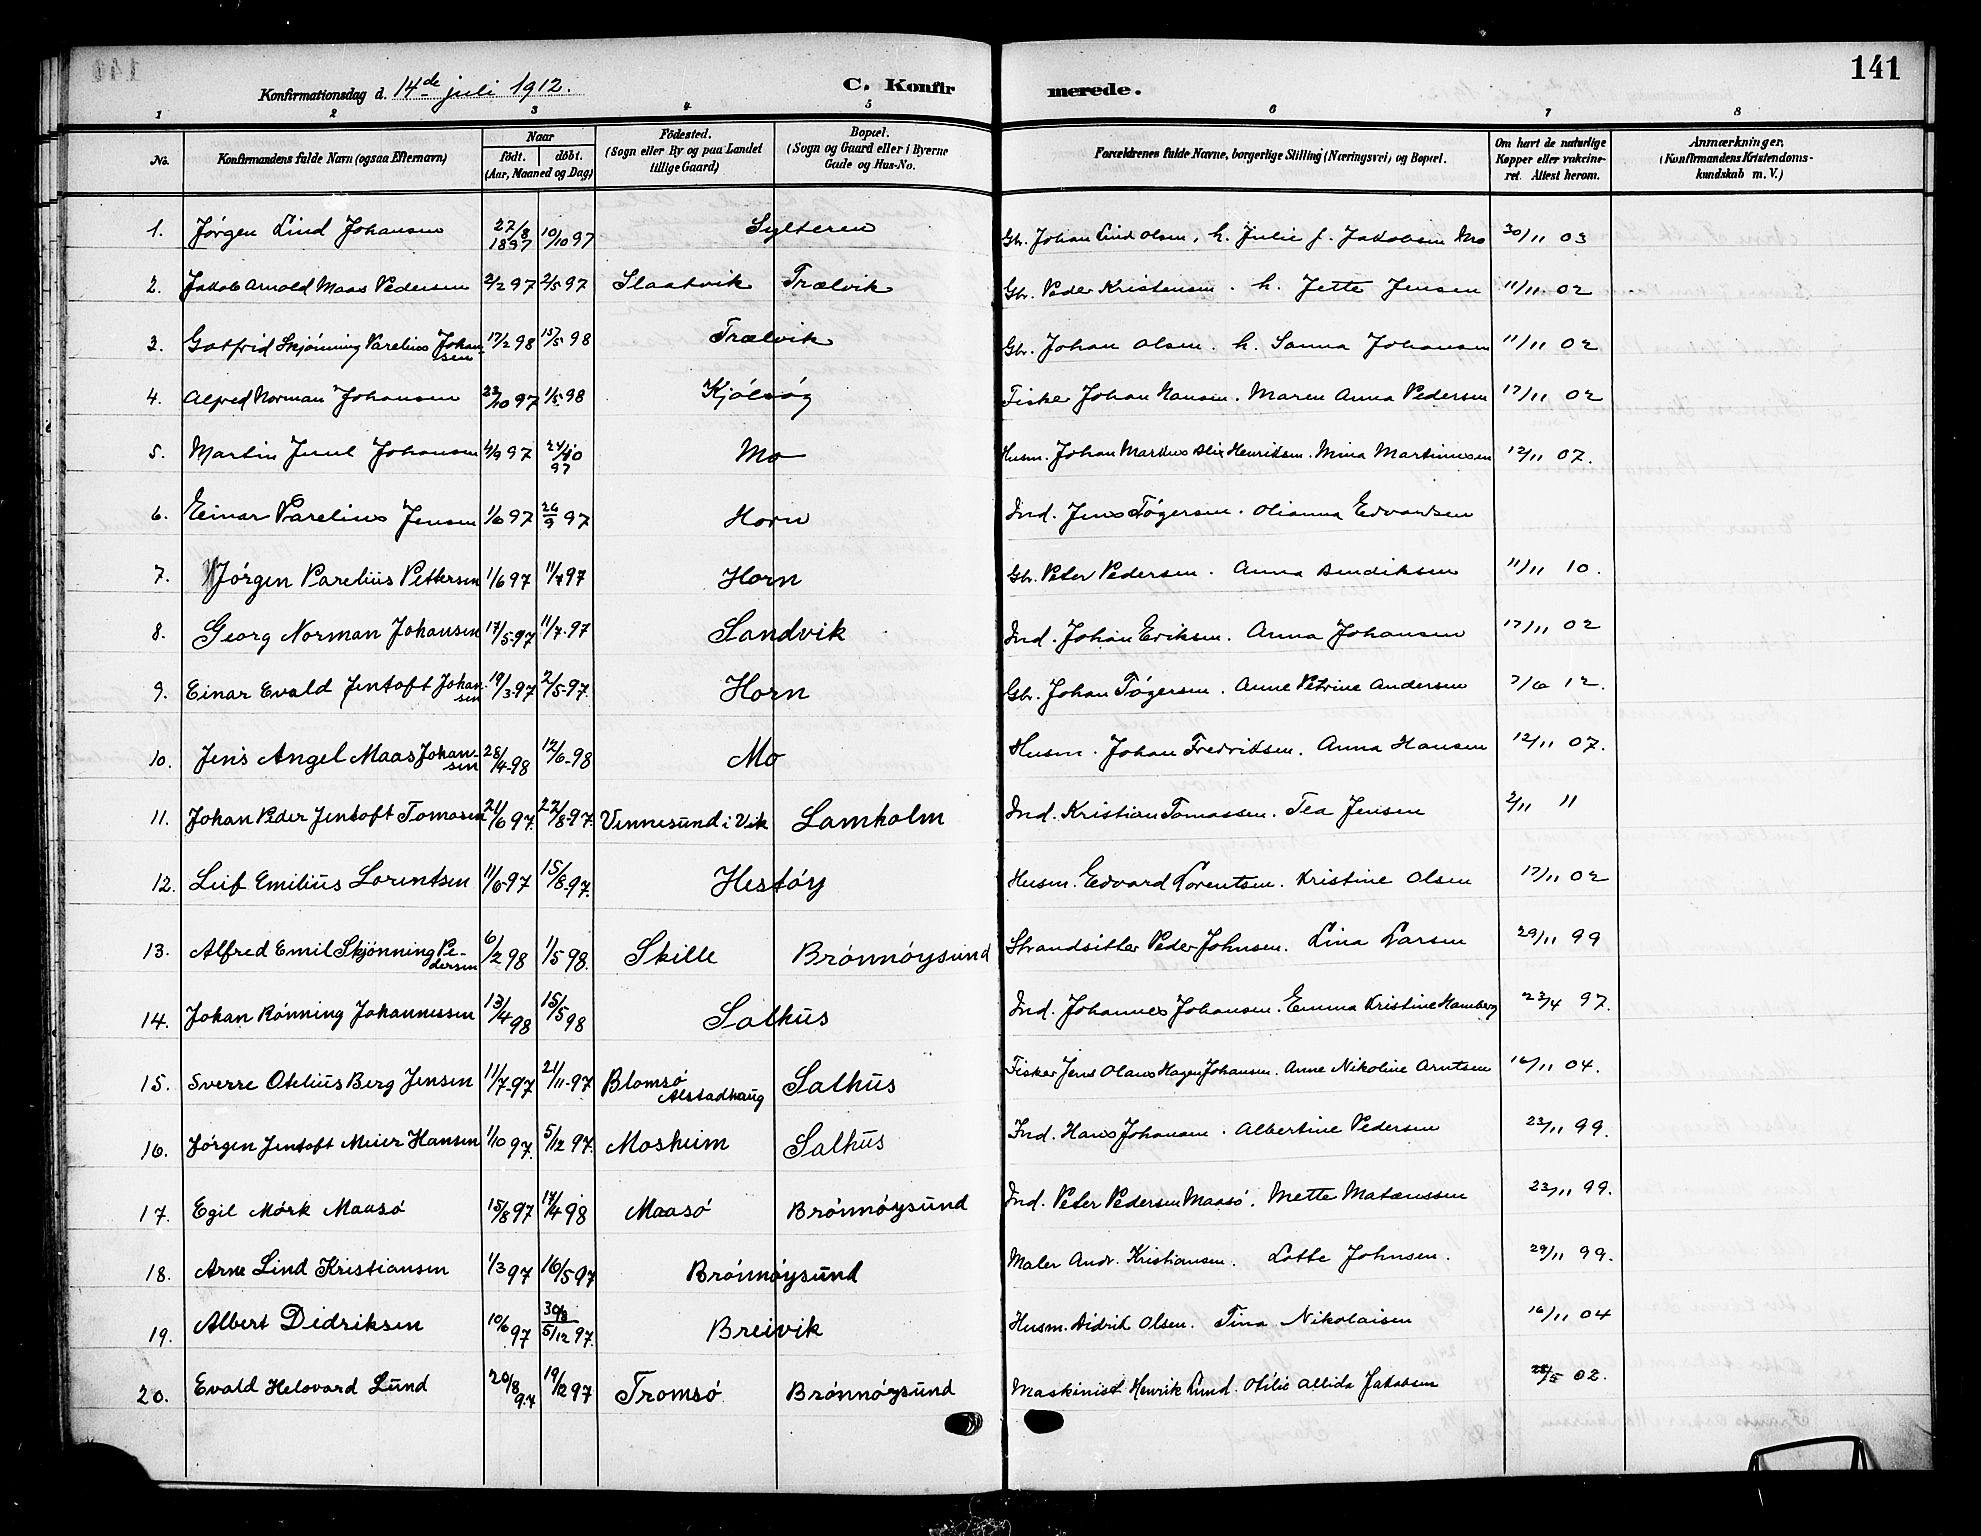 141
Konfirmationsdag d. 14de juli 1912.
C. Konfirmerede.
1 2 3 4 5 6 7 8
No. Konfirmandens fulde Navn (ogsaa Efternavn) Naar født. døbt. (Aar, Maaned og Dag) Födested. (Sogn eller By og paa Landet tillige Gaard) Bopæl. (Sogn og Gaard eller i Byerne Gade og Hus-No. Forældrenes fulde Navne, borgerlige Stilling (Næringsvei) og Bopæl. Om havt de naturlige Kopper eller vakcineret. Attest herom. Anmærkninger. (Konfirmandens Kristendomskundskab m. V.)
1. Jørgen Lind Johansen 27/8 1897 10/10 97 Sylteren Gbr. Johan Lind Olsen, h. Julie f. Jakobsen Mo 30/11 03
2. Jakob Arnold Maas Pedersen 2/2 97 2/5 97 Slaatvik Trælvik Gbr. Peder Kristensen. h. Jette Jensen 11/11 02
3. Gotfrid Skjönning Parelius Johansen 17/2 98 15/5 98 Trælvik Gbr. Johan Olsen. h. Sanna Johansen 11/11 02
4. Alfred Norman Johansen 23/10 97 1/5 98 Kjölsöy Fisker Johan Hansen. Maren Anna Pedersen 17/11 02
5. Martin Juul Johansen 4/9 97 24/10 97 Mo Husm. Johan Markus Blix Henriksen. Mina Martinussen 12/11 07.
6. Einar Parelius Jensen 1/6 97 26/9 97 Horn Ind. Jens Tøgersen. Olianna Edvardsen
7. Jörgen Parelius Pettersen 1/6 97 11/7 97 Horn Gbr. Peter Pedersen. Anna Bendiksen 11/11 10.
8. Georg Norman Johansen 17/5-97 11/7-97 Sandvik Ind. Johan Eriksen. Anna Johansen 17/11 02
9. Einar Evald Jentoft Johansen 19/3-97 2/5-97. Horn Gbr. Johan Tøgersen. Anne Petrine Andersen 7/6 12.
10. Jens Angel Maas Johansen 28/4-98 12/6-98 Mo Husm. Johan Fredriksen. Anna Hansen 12/11 07.
11. Johan Peder Jentoft Tomasen 21/6 97. 22/8-97. Vennesund i Vik Lamholm Ind. Kristian Tomassen. Tea Jensen 2/11 11
12. Leif Emilius Lorentsen 11/6-97 15/8-97. Hestöy Husm. Edvard Lorentsen. Kristine Olsen 17/11 02
13. Alfred Emil Skjönning Pedersen 6/2 98 1/5 98. Skille Brönnöysund Strandsitter Peder Johnsen. Lina Larsen 29/11 99
14. Johan Rönning Johannessen 13/4 98 15/5 98 Salhus Ind. Johannes Johansen. Emma Kristine Hamberg 23/4 97.
15. Sverre Otelius Berg Jensen 11/7-97 21/11-97 Blomsö Alstadhaug Salhus Fisker Jens Olaus Hagen Johansen. Anne Nikoline Arntsen 16/11 04.
16. Jörgen Jentoft Meier Hansen 1/10 97. 5/12 97. Mosheim Salhus Ind. Hans Johansen. Albertine Pedersen 23/11 99.
17. Egil Mörk Maasö 15/8 97 17/4-98 Maasö Brönnöysund Ind. Peter Pedersen Maasö. Mette Matæussen 23/11 99.
18. Arne Lind Kristiansen 1/3 97 16/5-97 Brönnöysund Maler Andr. Kristiansen. Lotte Johnsen. 29/11 99.
19. Albert Didriksen 10/6 97 5/12 97. Breivik Husm. Didrik Olsen. Tina Nikolaisen 16/11 04
20. Evald Helovard Lund 20/8 97 19/12 97 Tromsö Brönnöysund Maskinist Henrik Lund. Otilie Allida Jakobsen 28/5 02.